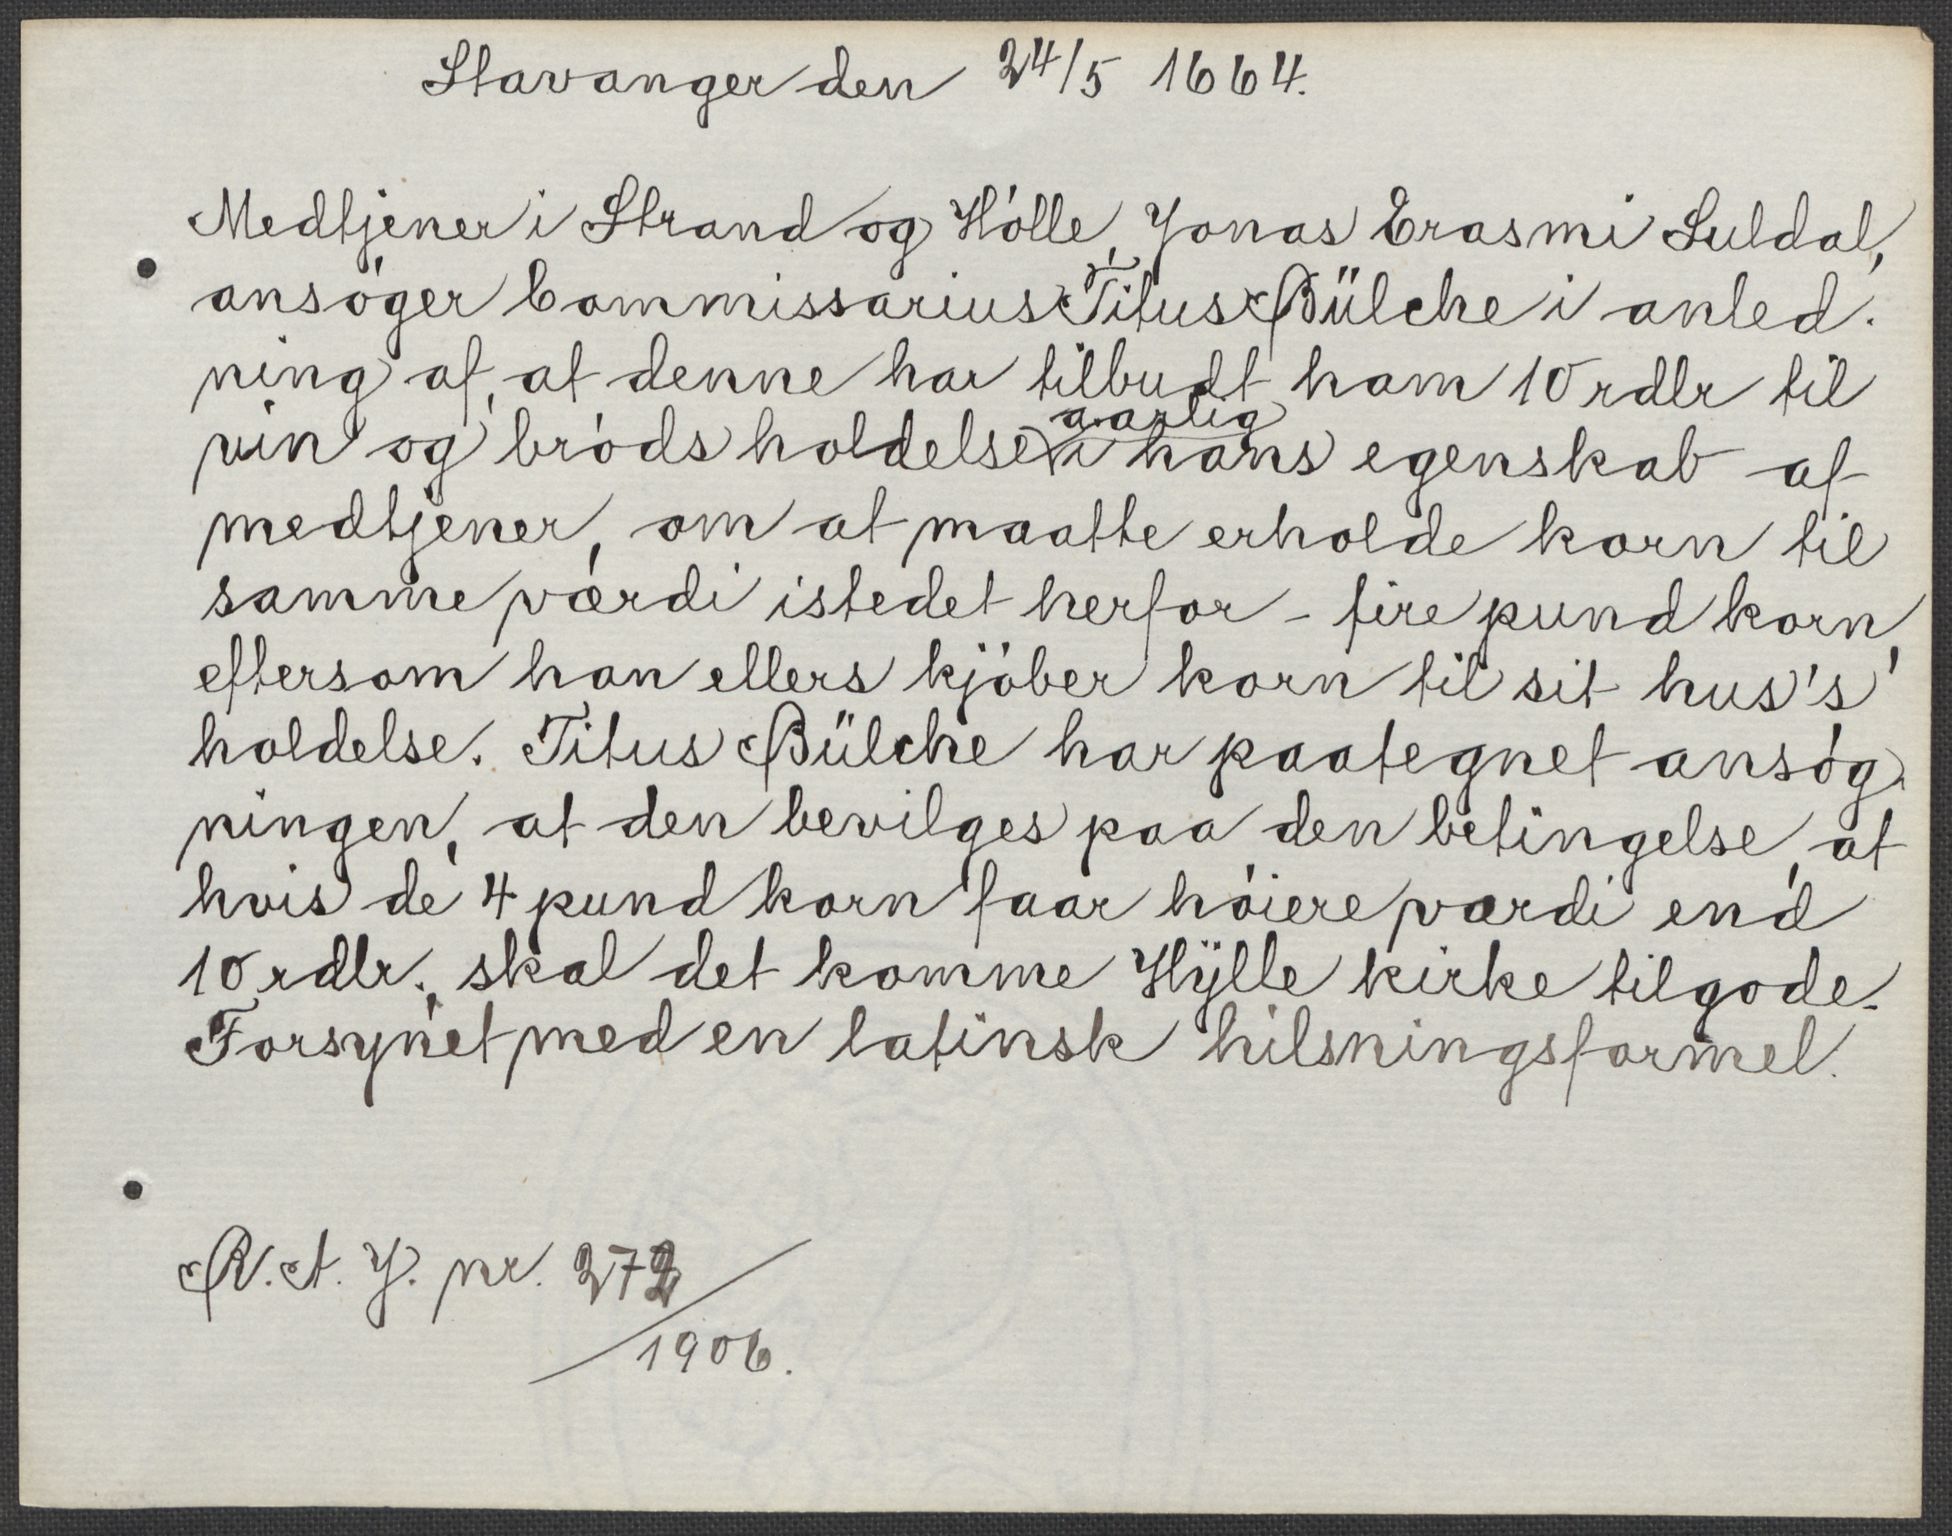 Stavanger den 24/5 1664.
Medtjener i Strand og Hólle, Jonas Erasmi Suldal,
ansóger Commissarius Titus Bülche i anled.
ning af, at denne har tilbudt ham 10 rdlr til
aarlig
vin og bróds holdelse i hans egenskab af
medtjener, om at maatte erholde korn til
samme værdi istedet herfor - fire pund korn,
eftersom han ellers kjóber korn til sit hus's
holdelse. Titus Bülche har paategnet ansóg.
ningen, at den bevilges paa den betingelse, at
hvis de 4 pund korn faar hóiere værdi end
10 rdlr., skal det komme Hÿlle kirke tilgode.
Forsynet med en latinsk hilsningsformel.
R. A. J. nr. 272/
1906.